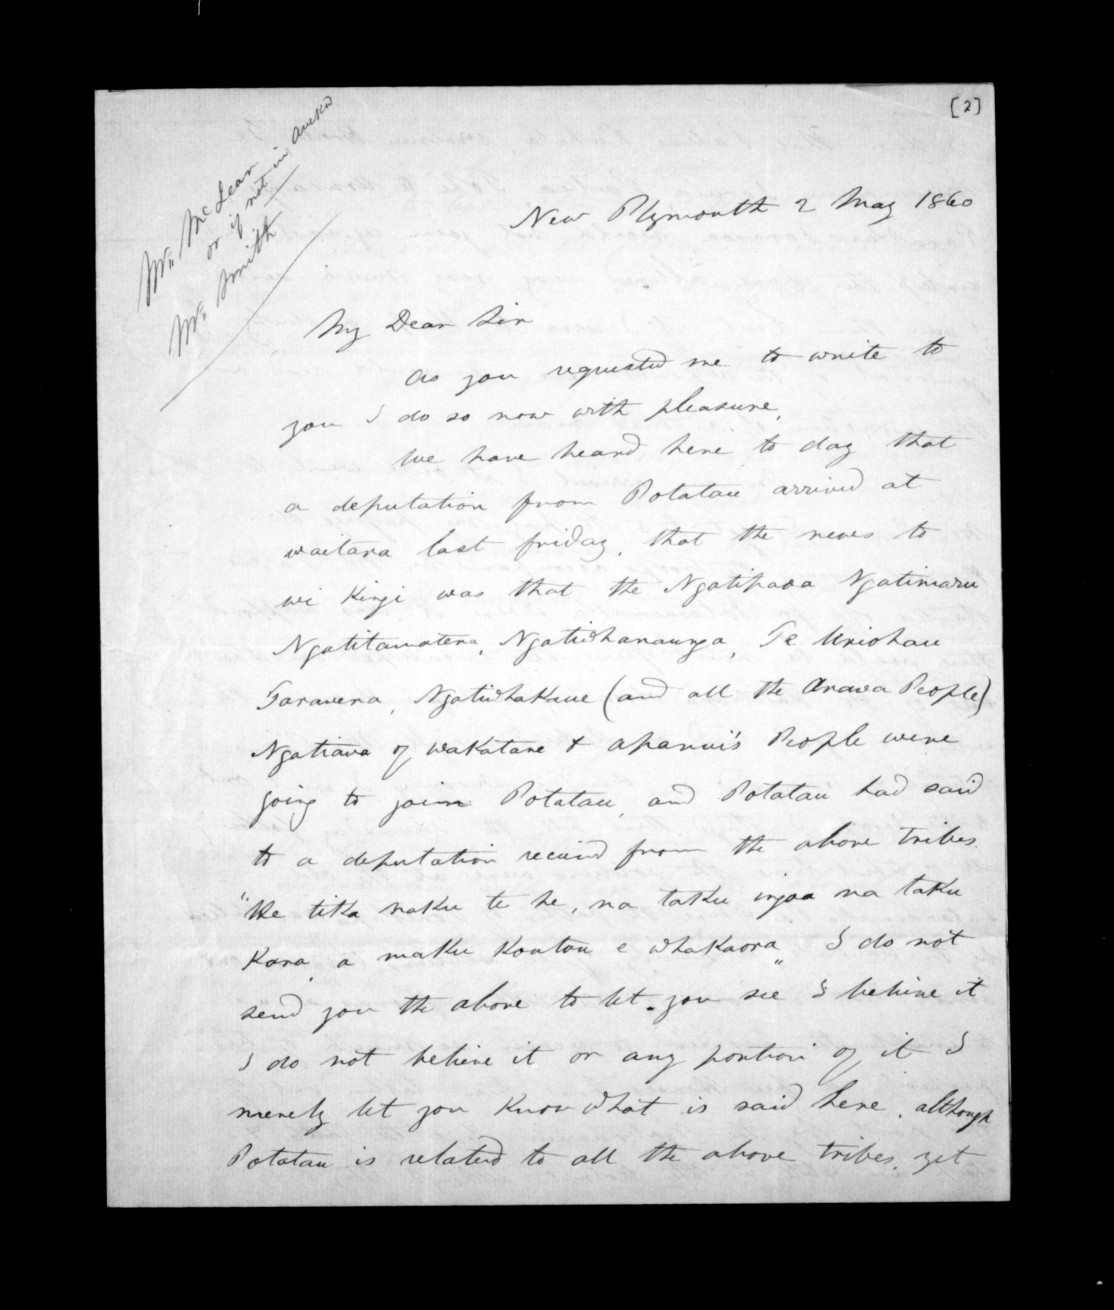 [2]
Mr. McLean
or if not in Auckd
Mr. Smith
New Plymouth 2 May 1860
My Dear Sir
As you requested me to write to
you I do so now with pleasure,
We have heard here to day that
a deputation from Potatau arrived at
Waitara last friday, that the news to
Wi Kingi was that the Ngatipaoa Ngatimaru
Ngatitamatera, Ngatiwhanaunga, Te Uriohau
Tarawera, Ngatiwhakaue (and all the Arawa People)
Ngatiawa of Wakatane & Apanui's People were
going to join Potatau, and Potatau had said
to a deputation received from the above tribes.
"He tika naku te he, na taku ingoa na taku
Kara, a maku Koutou e whakaora" I do not
send you the above to let you see I believe it
I do not believe it or any portion of it I
merely let you know what is said here. although
Potatau is related to all the above tribes. yet